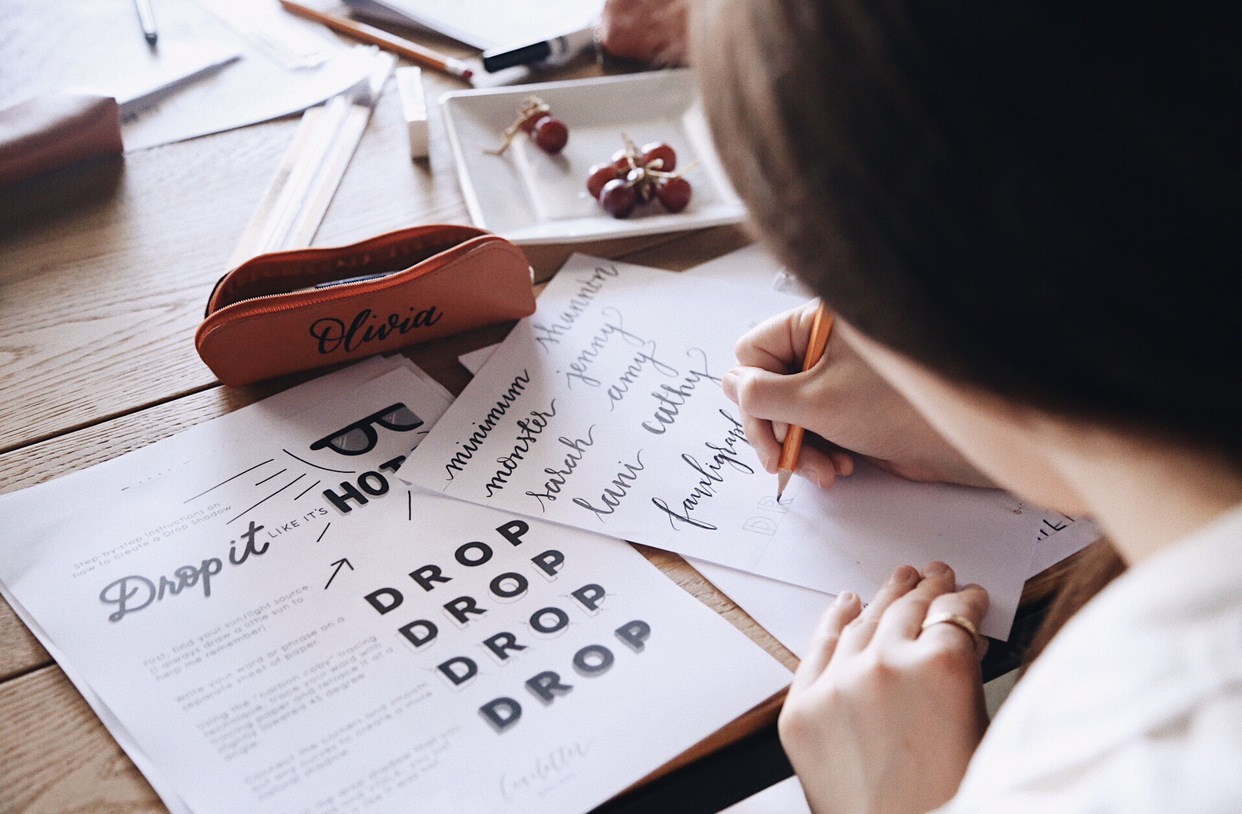 Olivia
shannon
jenny
amy
cathy
minimum
monster
sarah
lani
fauxligraph
DR
Step-by-step instructions on
how to create a Drop Shadow
Drop it LIKE IT'S HOT
First, find your sun/light source.
(I always draw a little sun to
help me remember).
Write your word or phrase on a
separate sheet of paper.
Using the "carbon copy" tracing
technique, trace your word with
tracing paper and retrace it at a
slightly lowered 45 degree
angle.
Connect the corners and smooth
out any curves to create a more
shadow.
DROP
DROP
DROP
DROP